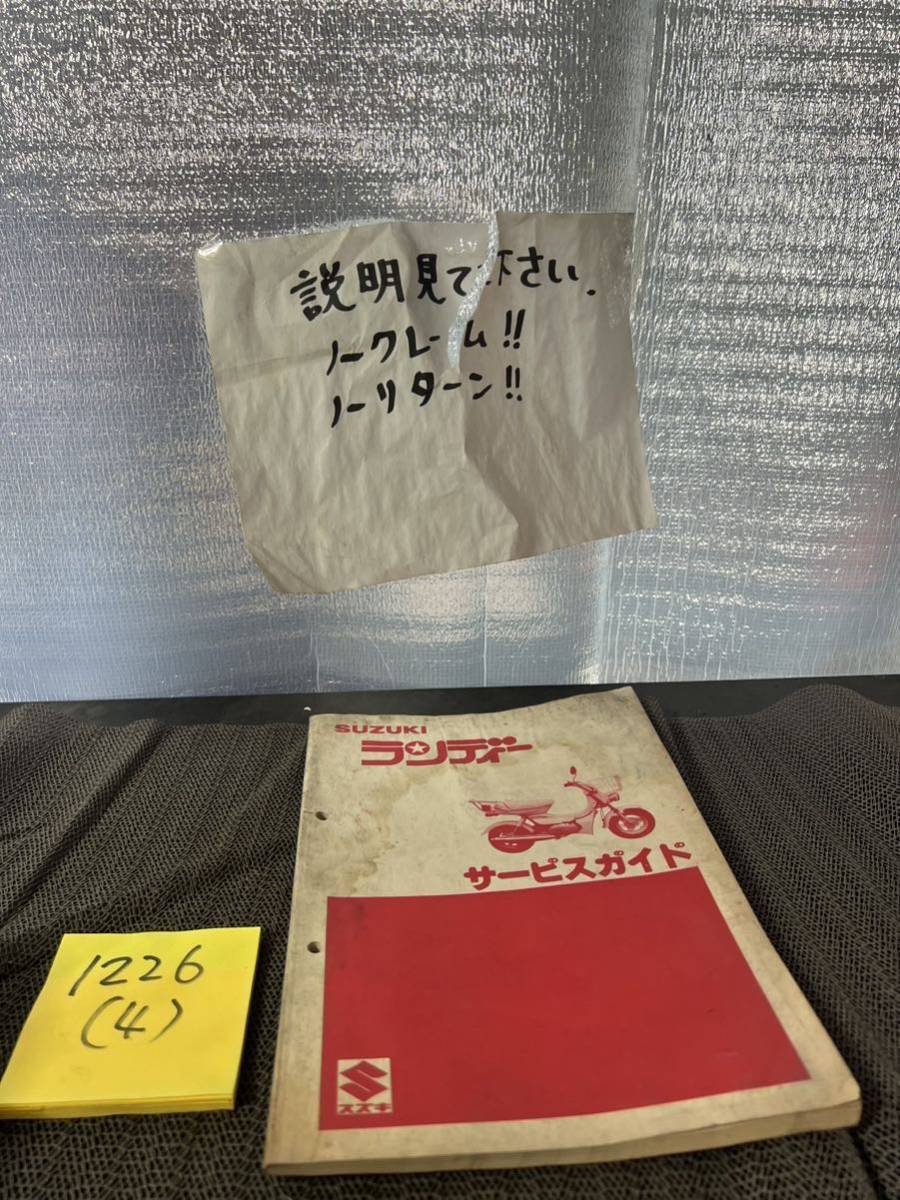 説明見て下さい.
ノークレーム!!
ノーリターン!!
SUZUKI
ランディー
サービスガイド
スズキ
1226
(4)